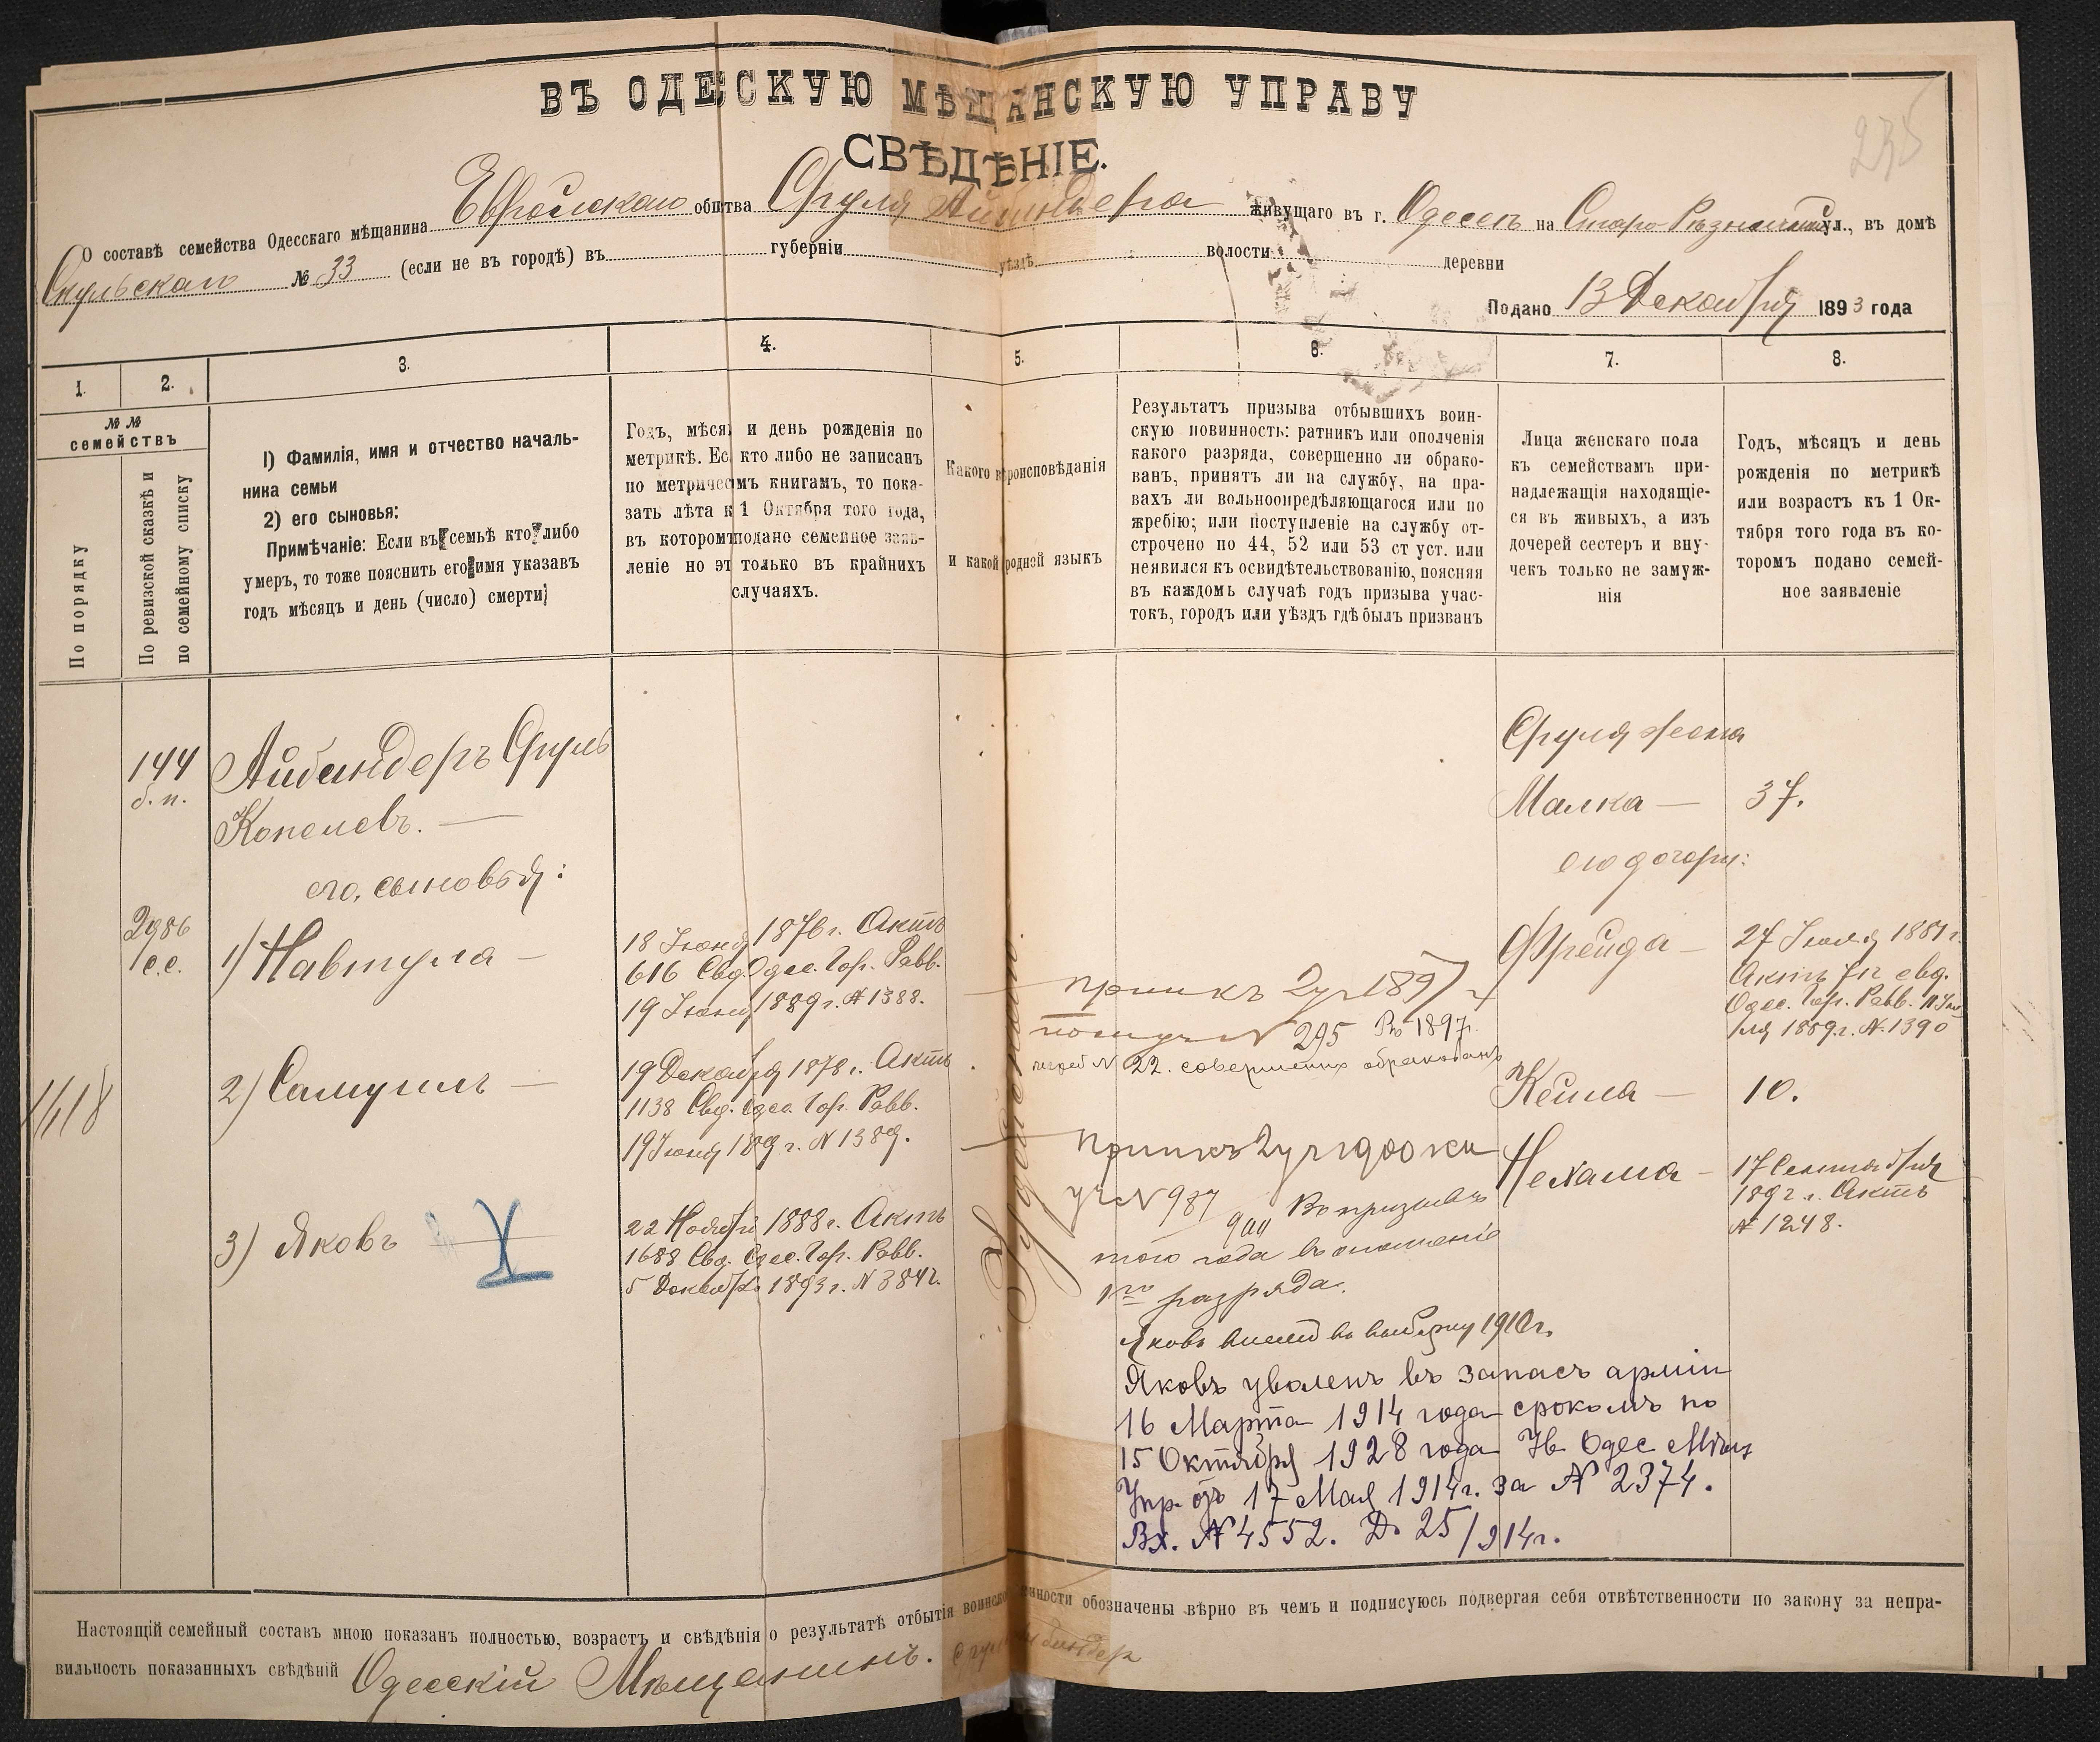 235
ВЪ ОДЕССКУЮ МѢЩАНСКУЮ УПРАВУ
СВѢДѢНІЕ.
О составѣ семейства Одесскаго мѣщанина Еврейскаго общтва Сруля Айбиндера живущаго въ г. Одессѣ на Старо-Рѣзничной ул., въ домѣ
Скульскаго № 33 (если не въ городѣ) въ губерніи уѣздѣ волости деревни
Подано 13 Декабря 1893 года
1. 2. 3. 4. 5. 6. 7. 8.
№ №
семействъ
По порядку
По ревизской сказкѣ и
по семейному списку
1) Фамилія, имя и отчество началь-
ника семьи
2) его сыновья:
Примѣчаніе: Если въ семьѣ кто либо
умеръ, то тоже пояснить его имя указавъ
годъ мѣсяцъ и день (число) смерти
Годъ, мѣсяц и день рожденія по
метрикѣ. Ес кто либо не записанъ
по метричесмъ книгамъ, то пока-
зать лѣта к 1 Октября того года,
въ которомъ подано семейное заяв-
леніе но эт только въ крайнихъ
случаяхъ.
Какого вѣроисповѣданія
и какой родной языкъ
Результатъ призыва отбывшихъ воин-
скую повинность: ратникъ или ополченія
какого разряда, совершенно ли обрако-
ванъ, принятъ ли на службу, на пра-
вахъ ли вольноопредѣляющагося или по
жребію; или поступленіе на службу от-
строчено по 44, 52 или 53 ст уст. или
неявился къ освидѣтельствованію, поясняя
въ каждомъ случаѣ годъ призыва учас-
токъ, городъ или уѣздъ гдѣ былъ призванъ
Лица женскаго пола
къ семействамъ при-
надлежащія находящіе-
ся въ живыхъ, а изъ
дочерей сестеръ и вну-
чекъ только не замуж-
нія
Годъ, мѣсяцъ и день
рожденія по метрикѣ
или возрастъ къ 1 Ок-
тября того года въ ко-
торомъ подано семей-
ное заявленіе
144
б. п.
Айбиндеръ Сруль
Копелевъ. —
его, сыновья:
2986
с.с.
1) Навтула —
18 Іюня 1876 г. Актъ
616 Свд. Одес. Гор. Равв.
19 Іюня 1889 г. № 1388.
2) Самуилъ —
19 Декабря 1878 г. Актъ
1138 Свд. Одес. Гор. Равв.
19 Іюня 1889 г. № 1389.
3) Яковъ
22 Ноября 1888 г. Актъ
1688 Свд. Одес. Гор. Равв.
5 Декабря 1893 г. № 3842.
Іудейскаго
припскъ 2 уч 1897 г
№ 295 Въ 1897 г.
жреб № 22. совершенно обракованъ
припскъ 2 уч 1900 къ
уч № 987
911 Въ призывъ
того года въ ополченіе
1го разряда.
Яковъ внесенъ въ выборку 1910 г.
Яковъ уволенъ въ запасъ арміи
16 Марта 1914 года срокомъ по
15 Октября 1928 года Ув. Одес Мѣщ
Упр. отъ 17 Мая 1914 г. за № 2374.
Вх. № 4552. Д. 25/914 г.
Сруля жена
Малка — 37.
его дочери:
Фрейда —
27 Іюля 1881 г.
Актъ 712 свд.
Одес. Гор. Равв. 11 Iю
ля 1889 г. № 1390
Кейла — 10.
Нехама —
17 Сентября
1892 г. Актъ
№ 1248.
Настоящій семейный составъ мною показанъ полностью, возрастъ и свѣдѣнія о результатѣ отбытія воинской повинности обозначены вѣрно въ чемъ и подписуюсь подвергая себя отвѣтственности по закону за непра-
вильность показанныхъ свѣдѣній Одесскій Мѣщанинъ. Сруль Айбиндер